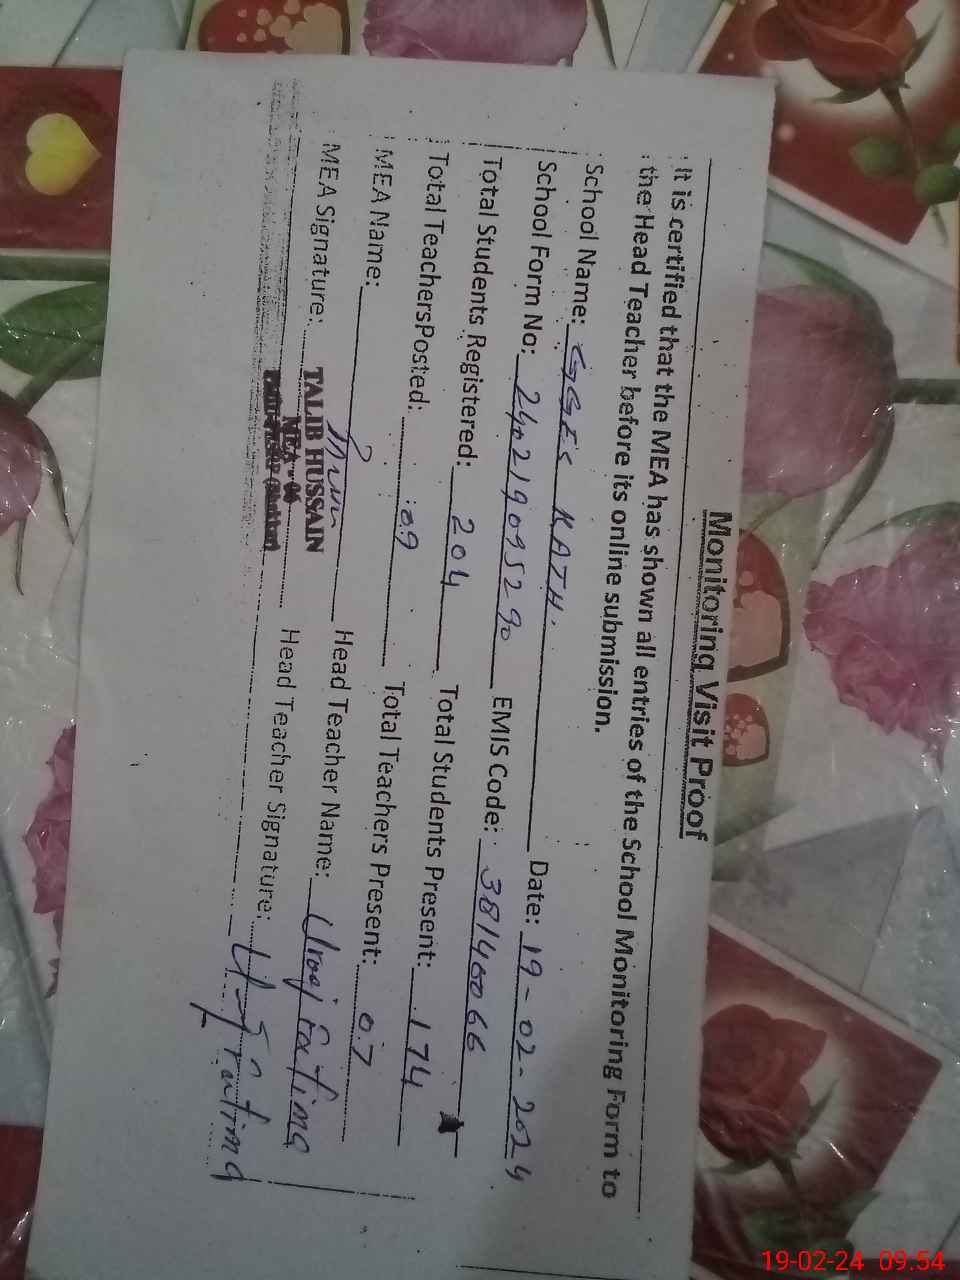 Monitoring Visit Proof
It is certified that the MEA has shown all entries of the School Monitoring Form to
the Head Teacher before its online submission.
School Name: GGES KATH. Date: 19-02-2024
School Form No: 240219095290 EMIS Code: 38140066
Total Students Registered: 204 Total Students Present: 174
Total TeachersPosted: 09 Total Teachers Present: 07
MEA Name: Head Teacher Name: Urooj Fatima
MEA Signature: Head Teacher Signature: U. Fatima
TALIB HUSSAIN
MEA - 06
19-02-24 09:54